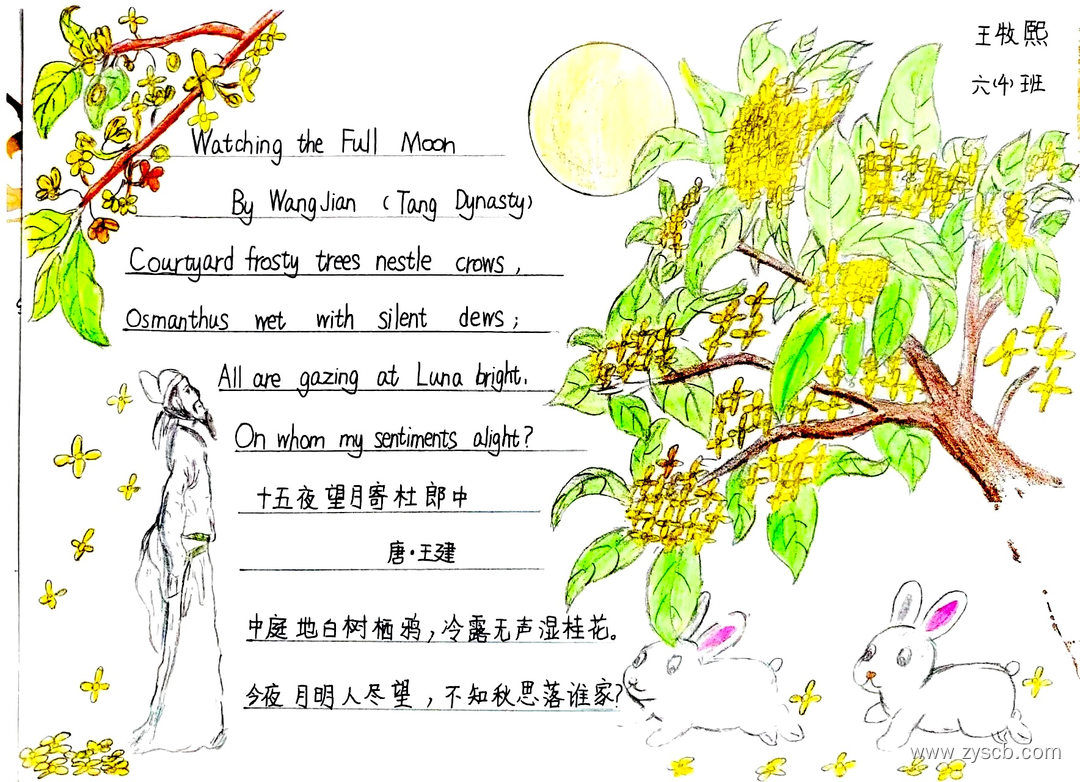 王牧熙
六(4)班
Watching the Full Moon
By Wang Jian (Tang Dynasty)
Courtyard frosty trees nestle crows,
Osmanthus wet with silent dews;
All are gazing at Luna bright.
On whom my sentiments alight?
十五夜望月寄杜郎中
唐·王建
中庭地白树栖鸦,冷露无声湿桂花。
今夜月明人尽望,不知秋思落谁家?
www.zyscb.com